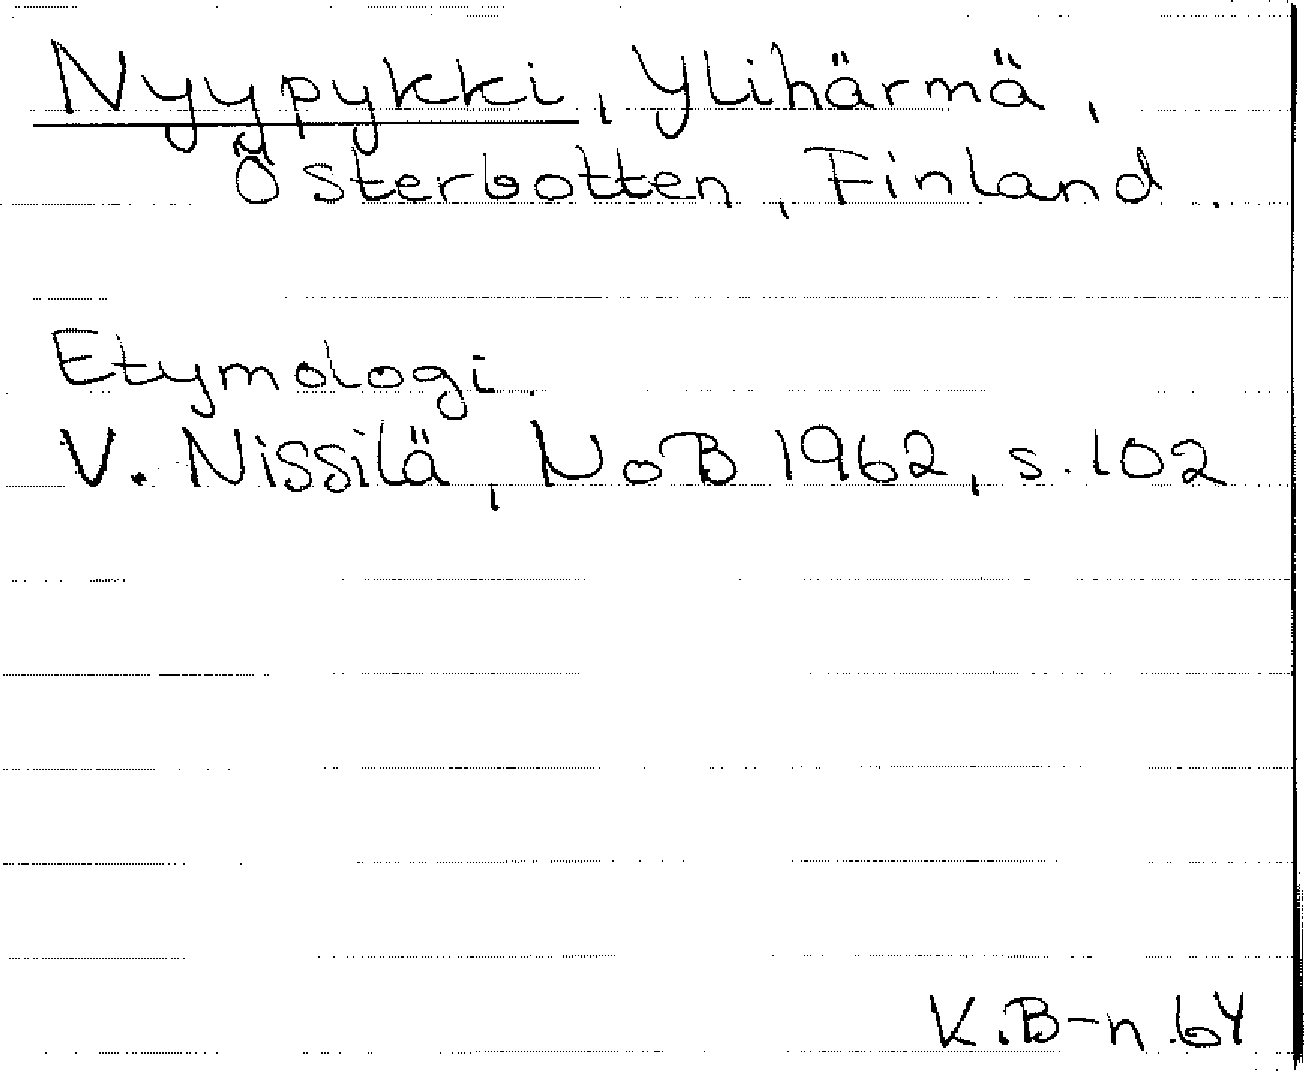 Nyypykki, Ylihärmä,
Österbotten, Finland.
Etymologi.
V. Nissilä, NoB 1962, s. 102
K.B-n.64